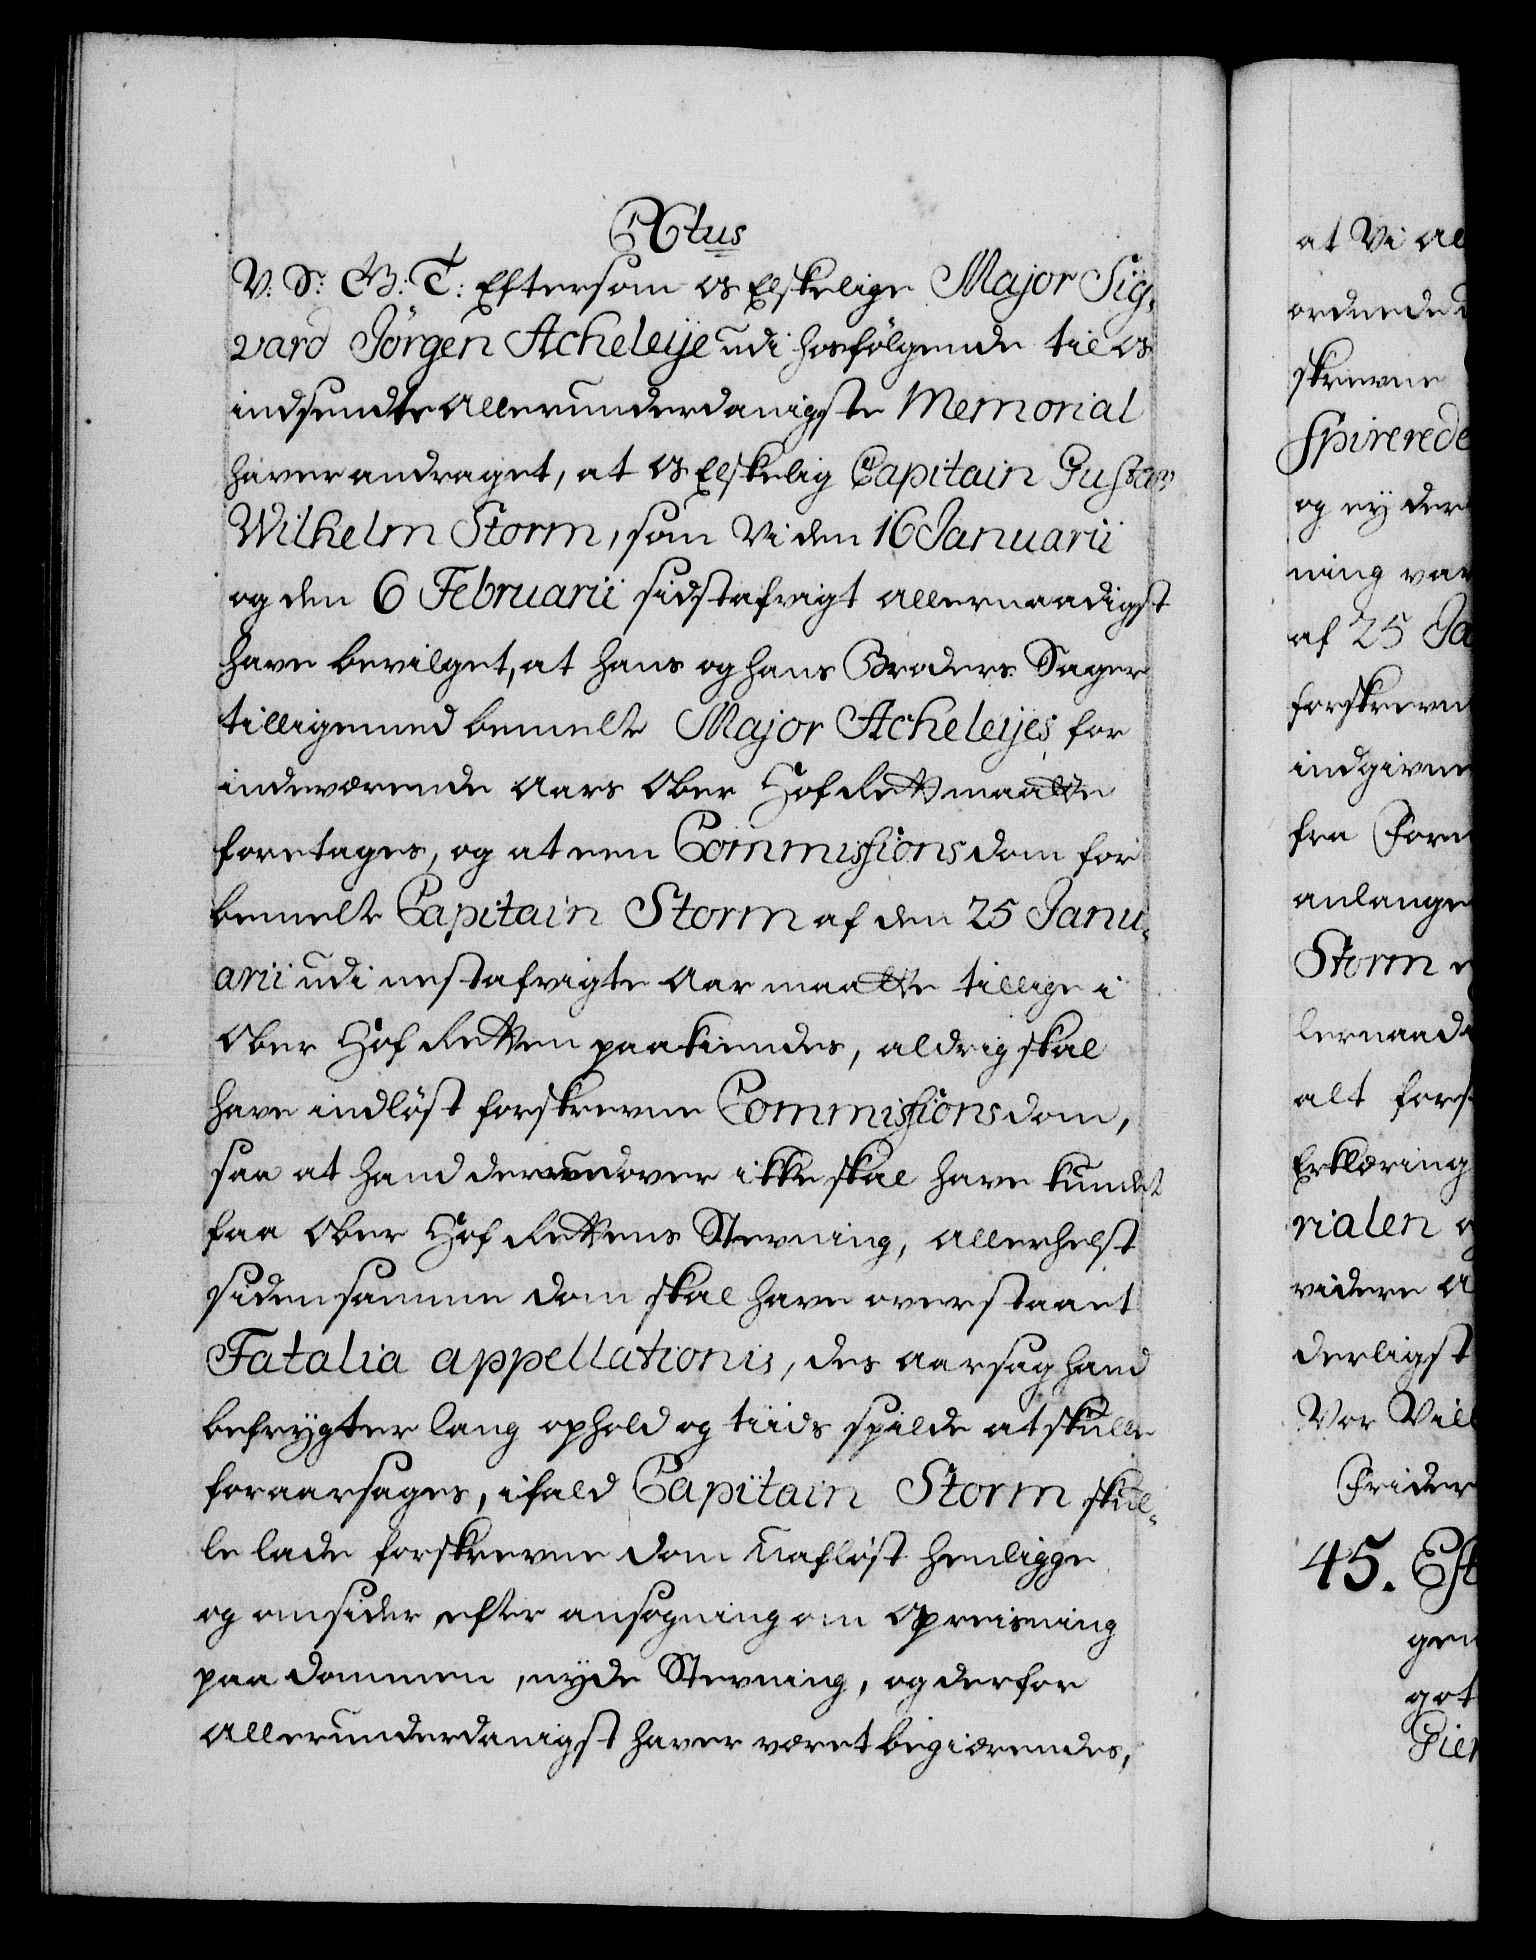 C 6tus
V. S. G. T: Eftersom os Elskelige Major Sig„
vard Jörgen Acheleije udi hosfölgende til os
indsendte allerunderdanigste Memorial
haver andraget, at os Elskelig Capitain Gustav
Wilhelm Storm, som Vi den 16 Januarii
og den 6 Februarii sidstafvigt allernaadigst
have bevilget, at hans og hans Broders Sager
tilligemed bemelte Major Acheleijes for
indeværende Aars Ober Hof Rett maatte
foretages, og at een Commissions dom for
bemelte Capitain Storm af den 25 Janu„
arii udi nestafvigte Aar maatte tillige i
Ober Hof Retten paakiendes, aldrig skal
have indlöst forskrevne Commissions dom,
saa at hand derudover ikke skal have kundet
faa Ober Hof Rettens Stevning, allerhelst
siden samme dom skal have overstaaet
Fatalia appellationis, des aarsag hand
befrygter lang ophold og tiids spilde at skulle
foraarsages, ifald Capitain Storm skul„
le lade forskrevne dom uaflöst henligge
og omsider efter ansögning om Opreisning
paa dommen, nyde Stevning, og derfor
allerunderdanigst haver været begiærendes,
at Vi al
ordnede
skrevne
spirerede
og ey der
ning var
af 25 Ja
forskrevn
indgivne
fra Form
anlange
Storm
lernaad
alt fors
Erklæring
rialen
videre A
derligst
Vor Vill
Frider
45. Eft
gen
got
Gier